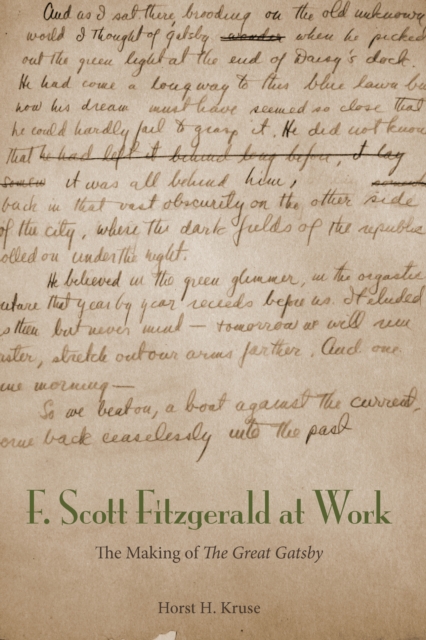 And as I sat there, brooding on the old unknown
world I thought of Gatsby wonder when he picked
out the green light at the end of Daisy's dock.
He had come a long way to this blue lawn bu
now his dream must have seemed so close that
he could hardly fail to grasp it. He did not know
that he had left it behind long before, it lay
it was all behind him,
back in that vast obscurity on the other side
of the city, where the dark fields of the republic
olled on under the night.
He believed in the green glimmer, in the orgastic
uture that year by year recedes before us. It eluded
s then but never mind — tomorrow we will run
aster, stretch out our arms farther. And one
ine morning—
So we beat on, a boat against the current,
orne back ceaselessly into the past
F. Scott Fitzgerald at Work
The Making of The Great Gatsby
Horst H. Kruse